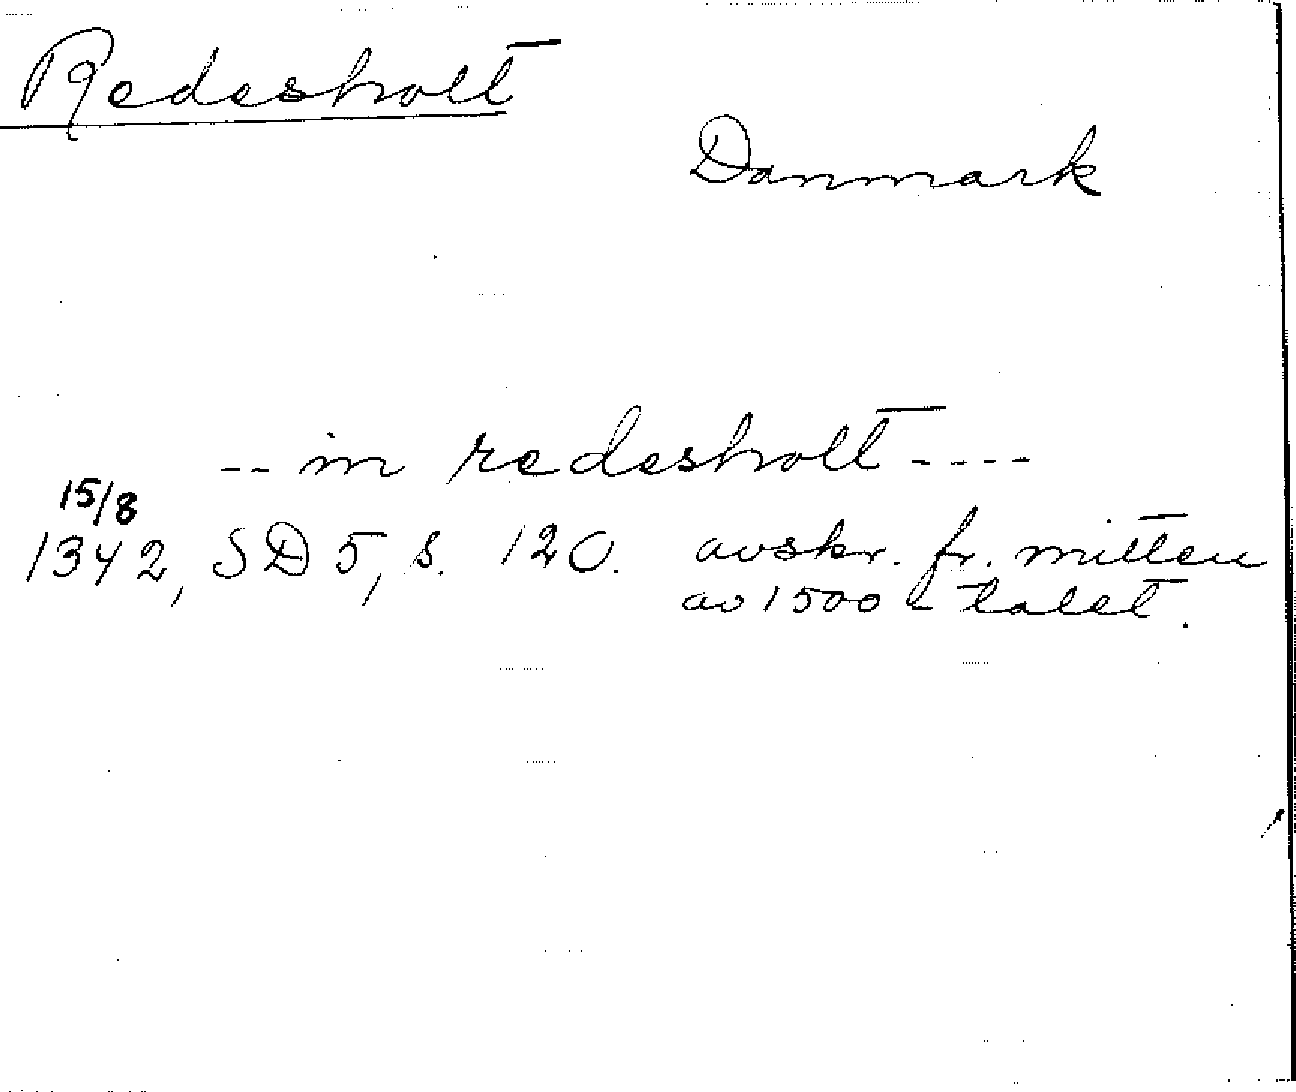 Redesholt
Danmark
-- in redesholt ----
15/8
1342, SD 5, s. 120. avskr. fr. mitten
av 1500-talet.